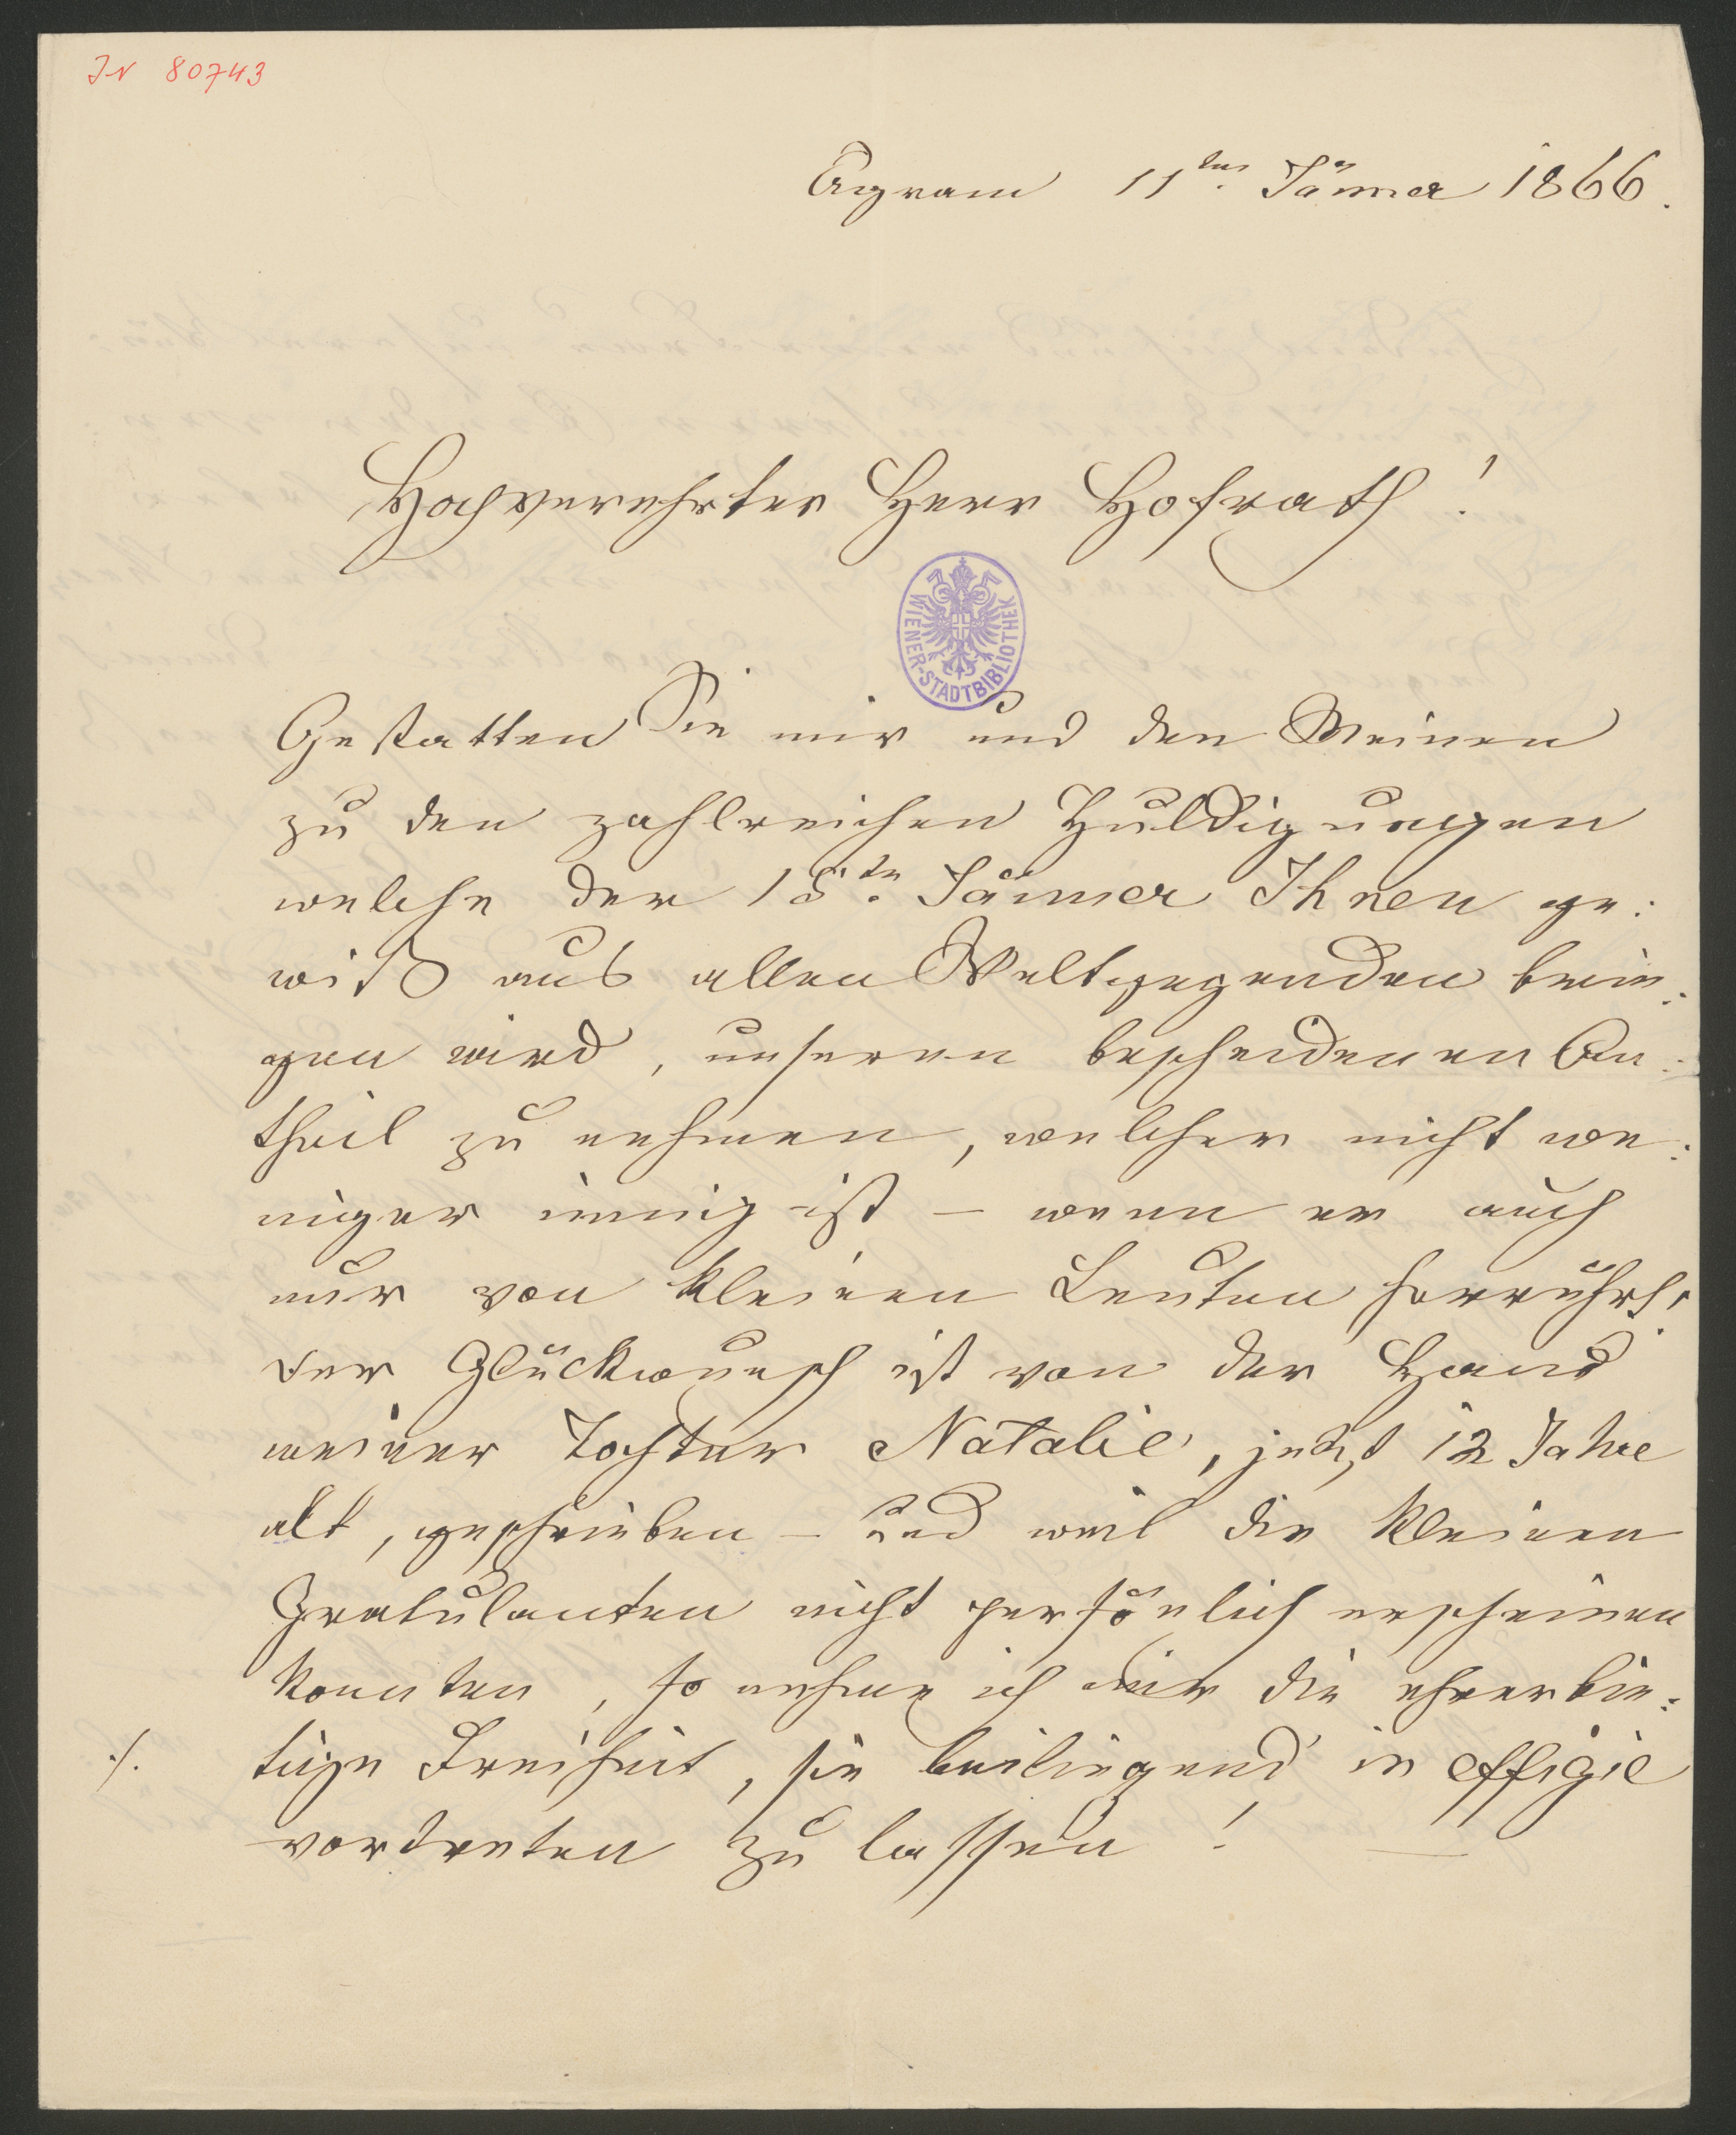 IN 80743
Agram 11ten Jänner 1866.
Hochverehrter Herr Hofrath!
WIENER-STADTBIBLIOTHEK
Gestatten Sie mir und den Meinen
zu den zahlreichen Huldigungen
welche der 15te. Jänner Ihnen ge:
wiß aus allen Weltgegenden brin:
gen wird, unseren bescheidenen An:
theil zu nehmen, welcher nicht we:
niger innig ist – wenn er auch
nur von kleinen Leuten herrührt.
Der Glückwunsch ist von der Hand
meiner Tochter Natalie, jetzt 12 Jahre
alt, geschrieben – und weil die kleinen
Gratulanten nicht persönlich erscheinen
konnten, so nehme ich mir die ehrerbie:
./. tige Freiheit, sie beiliegend in effigie
vortreten zu lassen! —